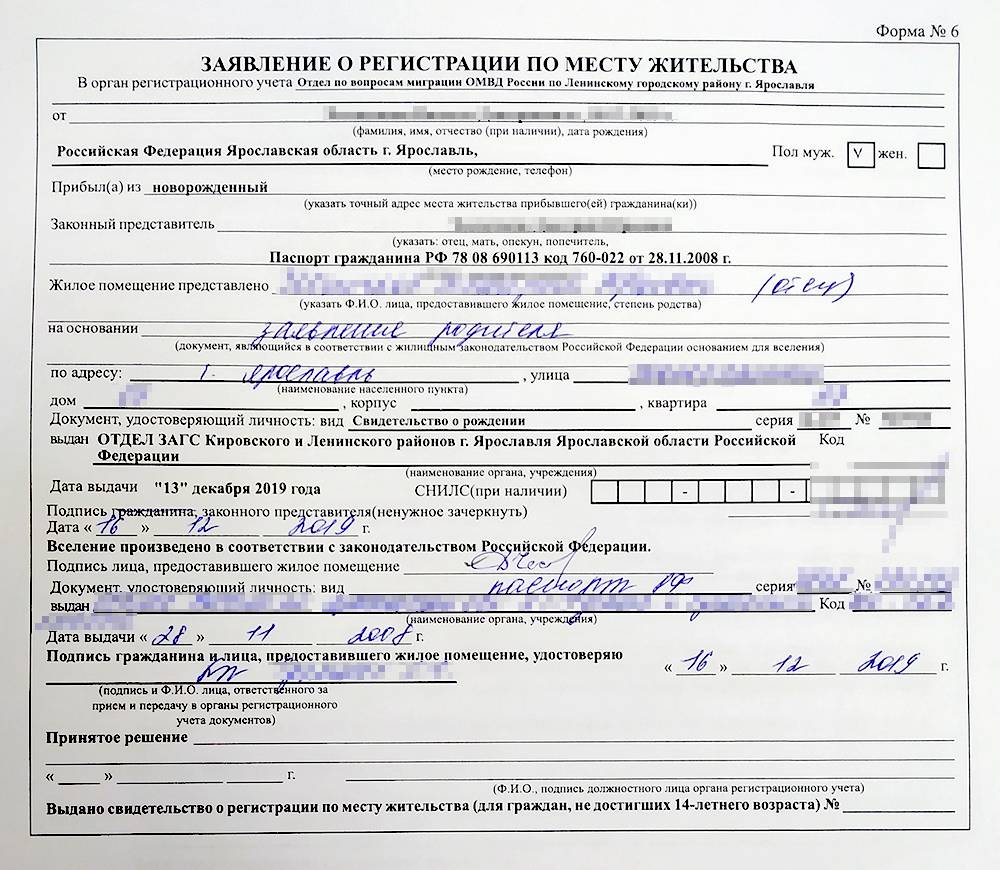 Форма № 6
ЗАЯВЛЕНИЕ О РЕГИСТРАЦИИ ПО МЕСТУ ЖИТЕЛЬСТВА
В орган регистрационного учета Отдел по вопросам миграции ОМВД России по Ленинскому городскому району г. Ярославля
от
(фамилия, имя, отчество (при наличии), дата рождения)
Российская Федерация Ярославская область г. Ярославль, Пол муж. V жен.
(место рождение, телефон)
Прибыл(а) из новорожденный
(указать точный адрес места жительства прибывшего(ей) гражданина(ки))
Законный представитель
(указать: отец, мать, опекун, попечитель,
Паспорт гражданина РФ 78 08 690113 код 760-022 от 28.11.2008 г.
Жилое помещение представлено (отец)
(указать Ф.И.О. лица, предоставившего жилое помещение, степень родства)
на основании заявление родителя
(документ, являющийся в соответствии с жилищным законодательством Российской Федерации основанием для вселения)
по адресу: г. Ярославль , улица
(наименование населенного пункта)
дом , корпус , квартира
Документ, удостоверяющий личность: вид Свидетельство о рождении серия №
выдан ОТДЕЛ ЗАГС Кировского и Ленинского районов г. Ярославля Ярославской области Российской Код
Федерации
(наименование органа, учреждения)
Дата выдачи "13" декабря 2019 года СНИЛС(при наличии) - -
Подпись гражданина, законного представителя(ненужное зачеркнуть)
Дата « 16 » 12 2019 г.
Вселение произведено в соответствии с законодательством Российской Федерации.
Подпись лица, предоставившего жилое помещение
Документ, удостоверяющий личность: вид паспорт РФ серия №
выдан Код
(наименование органа, учреждения)
Дата выдачи « 28 » 11 2008 г.
Подпись гражданина и лица, предоставившего жилое помещение, удостоверяю
« 16 » 12 2019 г.
(подпись и Ф.И.О. лица, ответственного за
прием и передачу в органы регистрационного
учета документов)
Принятое решение
« » г.
(Ф.И.О., подпись должностного лица органа регистрационного учета)
Выдано свидетельство о регистрации по месту жительства (для граждан, не достигших 14-летнего возраста) №